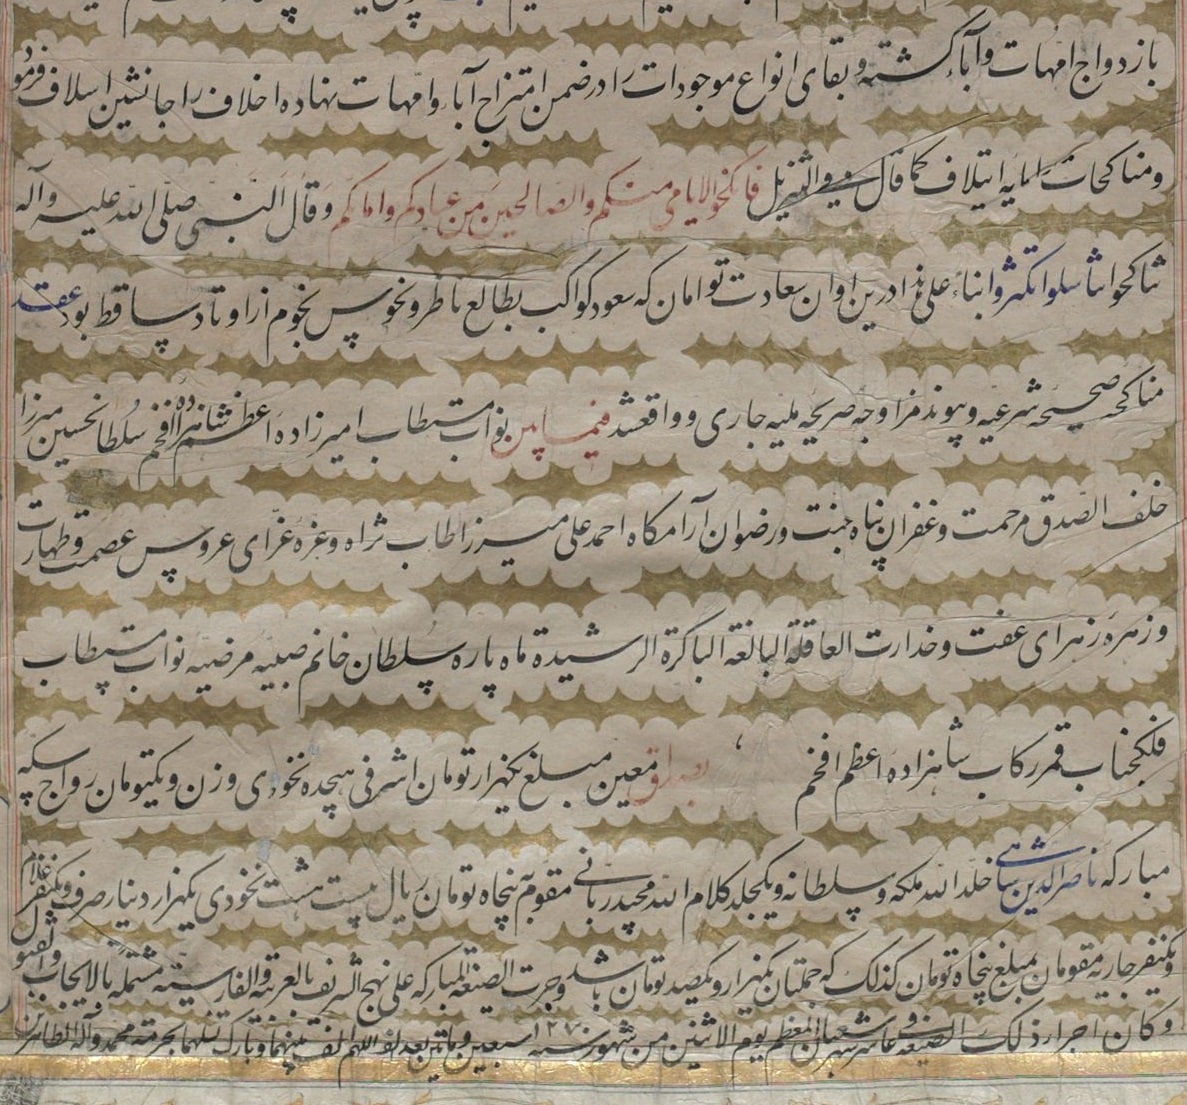 بازدواج امهات و آباء گشته و بقای انواع موجودات را در ضمن امتزاج آباء و امهات نهاده اخلاف را جانشین اسلاف فرمود
و مناکحات را مایه ایتلاف کما قال فی التنزیل فانکحوا الایامی منکم والصالحین من عبادکم و امائکم و قال النبی صلی الله علیه و آله
تناکحوا تناسلوا تکثروا ابناء علی هذا درین اوان سعادت توامان که سعود کواکب بطالع ناظر و نحوس نجوم از اوتاد ساقط بود عقد
مناکحه صحیحه شرعیه و پیوند مزاوجه صریحه ملیه جاری و واقع شد فیما بین نواب مستطاب امیرزاده اعظم شاهزاده افخم سلطانحسین میرزا
خلف الصدق مرحمت و غفران پناه جنت و رضوان آرامگاه احمد علی میرزا طاب ثراه و غره غرای عروس عصمت و طهارت
و زهره زهرای عفت و خدارت العاقلة البالغة الباکرة الرشیدة ماه پاره سلطان خانم صبیه مرضیه نواب مستطاب
فلکجناب قمر رکاب شاهزاده اعظم افخم بصداق معین مبلغ یکهزار تومان اشرفی هیجده نخودی وزن و یکتومان رواج سکه
مبارکه ناصرالدین شاهی خلد الله ملکه و سلطانه و یکجلد کلام الله مجید ربانی مقوم پنجاه تومان ریال بیست هشت نخودی یکهزار دینار صرف و یکنفر غلام
و یکنفر جاریه مقومان بمبلغ پنجاه تومان کذلک که جملتان یکهزار و یکصد تومان باشد و جرت الصیغة المبارکه علی نهج الشریف بالعربیة والفارسیة مشتملة بالایجاب والقبول
و کان اجراء ذلک الصیغه عاشر شهر شعبان المعظم یوم الاثنین من شهور سنه ۱۲۷۰ سبعین و مأتین بعد الف اللهم الف بینهما و بارک نسلهما بحرمة محمد و آله الطاهرین